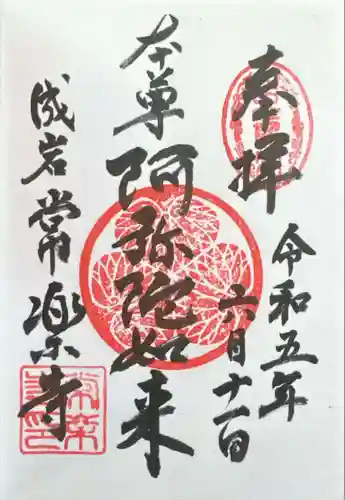 奉拝
令和五年
六月十一日
本尊
阿弥陀如来
成岩
常楽寺